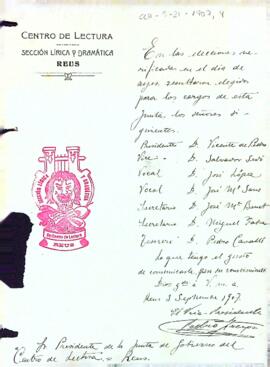 CENTRO DE LECTURA
SECCIÓN LÍRICA Y DRAMÁTICA
REUS
En las elecciones ve-
rificadas en el día de
ayer resultaron elegidos
para los cargos de esta
Junta, los señores si-
guientes.
Presidente D. Vicente de Pedro
Vice- D. Salvador
Vocal D. José López
Vocal D. José Mª Sans
Secretario D. José Mª Brunet
Secretario D. Miguel
Tesorero D. Pedro Cavallé
Lo que tengo el gusto
de comunicarle para su conocimiento
Dios gde á V. m. a.
Reus 3 Septiembre 1907.
El Vice-Presidente
SECCIÓN LÍRICA Y DRAMÁTICA
del Centro de Lectura
REUS
Sr Presidente de la Junta de Gobierno del
Centro de Lectura = Reus.